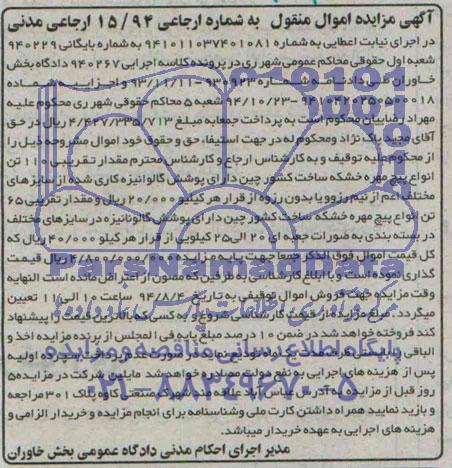 آگهی مزایده اموال منقول به شماره ارجاعی ۹۴ / ۱۵ ارجاعی مدنی
در اجرای نیابت اعطایی به شماره ۹۴۱۰۱۱۰۳۷۴۰۱۰۸۱ به شماره بایگانی ۹۴۰۲۲۹
شعبه اول حقوقی محاکم عمومی شهر ری در پرونده کلاسه اجرایی ۹۴۰۲۶۷ دادگاه بخش
خاوران طی دادنامه شماره ۹۳۰۹۲۳-۹۳/۱۱/۱۱ و اجرائیه شماده
۹۴۱۰۴۲۰۳۵۰۵۰۰۰۱۸-۹۴/۱۰/۲۳ شعبه ۵ محاکم حقوقی شهر ری محکوم علیه
مهراد رضاییان محکوم است به پرداخت جمعا به مبلغ ۴/۴۲۷/۳۳۵/۷۱۳ ریال در حق
آقای مجید باک نژاد ومحکوم له در جهت استیفاء حق و حقوق خود اموال مشروحه ذیل را
از محکوم علیه توقیف و به کارشناس ارجاع و کارشناس محترم مقدار تقریبی ۱۱۰ تن
انواع پیچ مهره خشکه ساخت کشور چین دارای پوشش گالوانیزه کاری شده از سایزهای
مختلف اعم از نیم رزوه یا بدون رزوه از قرار هر کیلو ۲۰/۰۰۰ ریال و مقدار تقریبی ۶۵
تن انواع پیچ مهره خشکه ساخت کشور چین دارای پوشش گالوانیزه در سایزهای مختلف
در بسته بندی به صورت جعبه ای ۲۰ الی ۲۵ کیلویی از قرار هر کیلو ۴۰/۰۰۰ ریال که
کل قیمت اموال فوق الذکر جمعا جهت پایه مزایده ۴/۸۰۰/۰۰۰/۰۰۰ ریال قیمت
گذاری نموده است و با ابلاغ کارشناسی به طرفین که مصون از اعتراض مانده است النهایه
وقت مزایده جهت فروش اموال توقیفی به تاریخ ۹۴/۸/۴ ساعت ۱۰ الی ۱۱ تعیین
میگردد. مبلغ مزایده از قیمت کارشناسی شروع و به کسی که بالاترین قیمت را پیشنهاد
کند فروخته خواهد شد در ضمن ۱۰ درصد مبلغ پایه فی المجلس از برنده مزایده اخذ و
پس از هزینه های اجرایی به نفع دولت مصادره خواهد شد مایلین شرکت در مزایده ۵
روز قبل از مزایده به آدرس عباس آباد علاقه مند شهرک صنعتی کاوه پلاک ۳۰۱ مراجعه
و بازید نمایید همراه داشتن کارت ملی و شناسنامه برای انجام مزایده و خریدار الزامی و
هزینه های اجرایی به عهده خریدار میباشد.
مدیر اجرای احکام مدنی دادگاه عمومی بخش خاوران
ParsNamadData
پایگاه اطلاع رسانی مناقصه و مزایده
۰۲۱-۸۸۳۴۹۶۷۰-۵